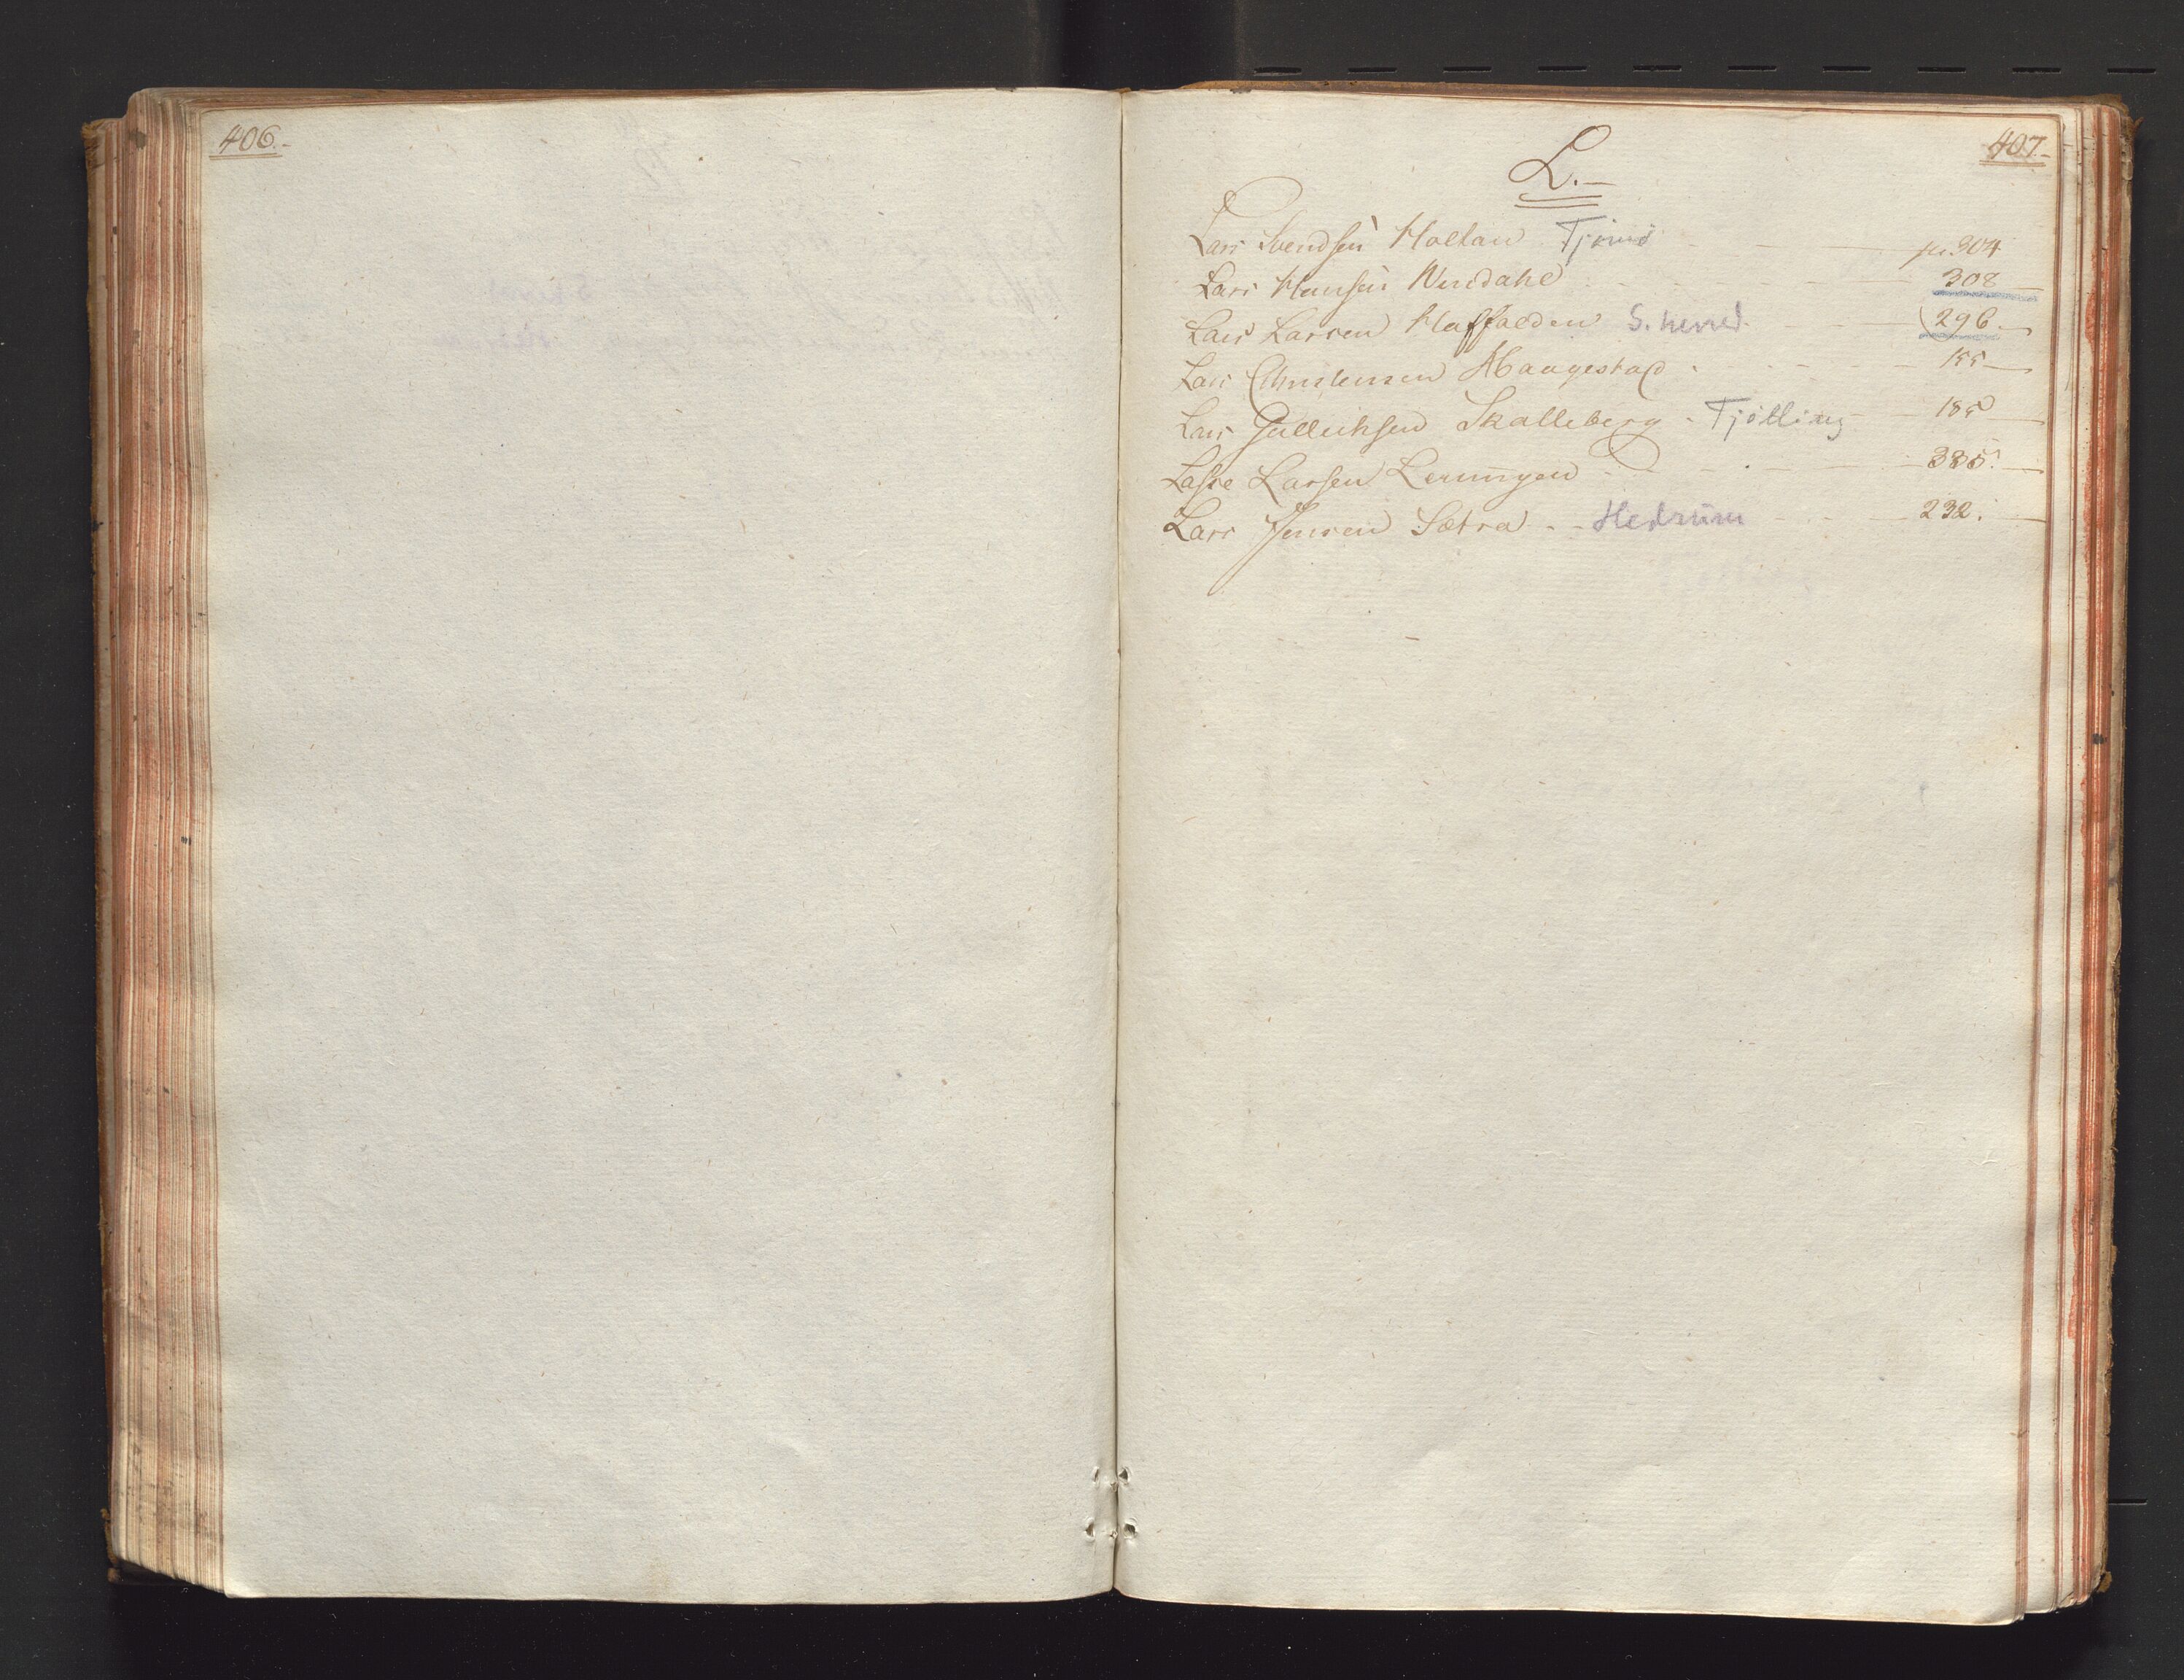 406.-
407-
L.-
Lars Svendsen Holtan Tjømø pr. 304
Lars Hansen Nordahl 308
Lars Larsen Haffalden S. herred. 296.
Lars Christensen Haagestad 155
Lars Gulliksen Skalleberg - Tjölling 185
Lasse Larsen Lerungen 385.
Lars Jensen Sætra - - Hedrum 232.